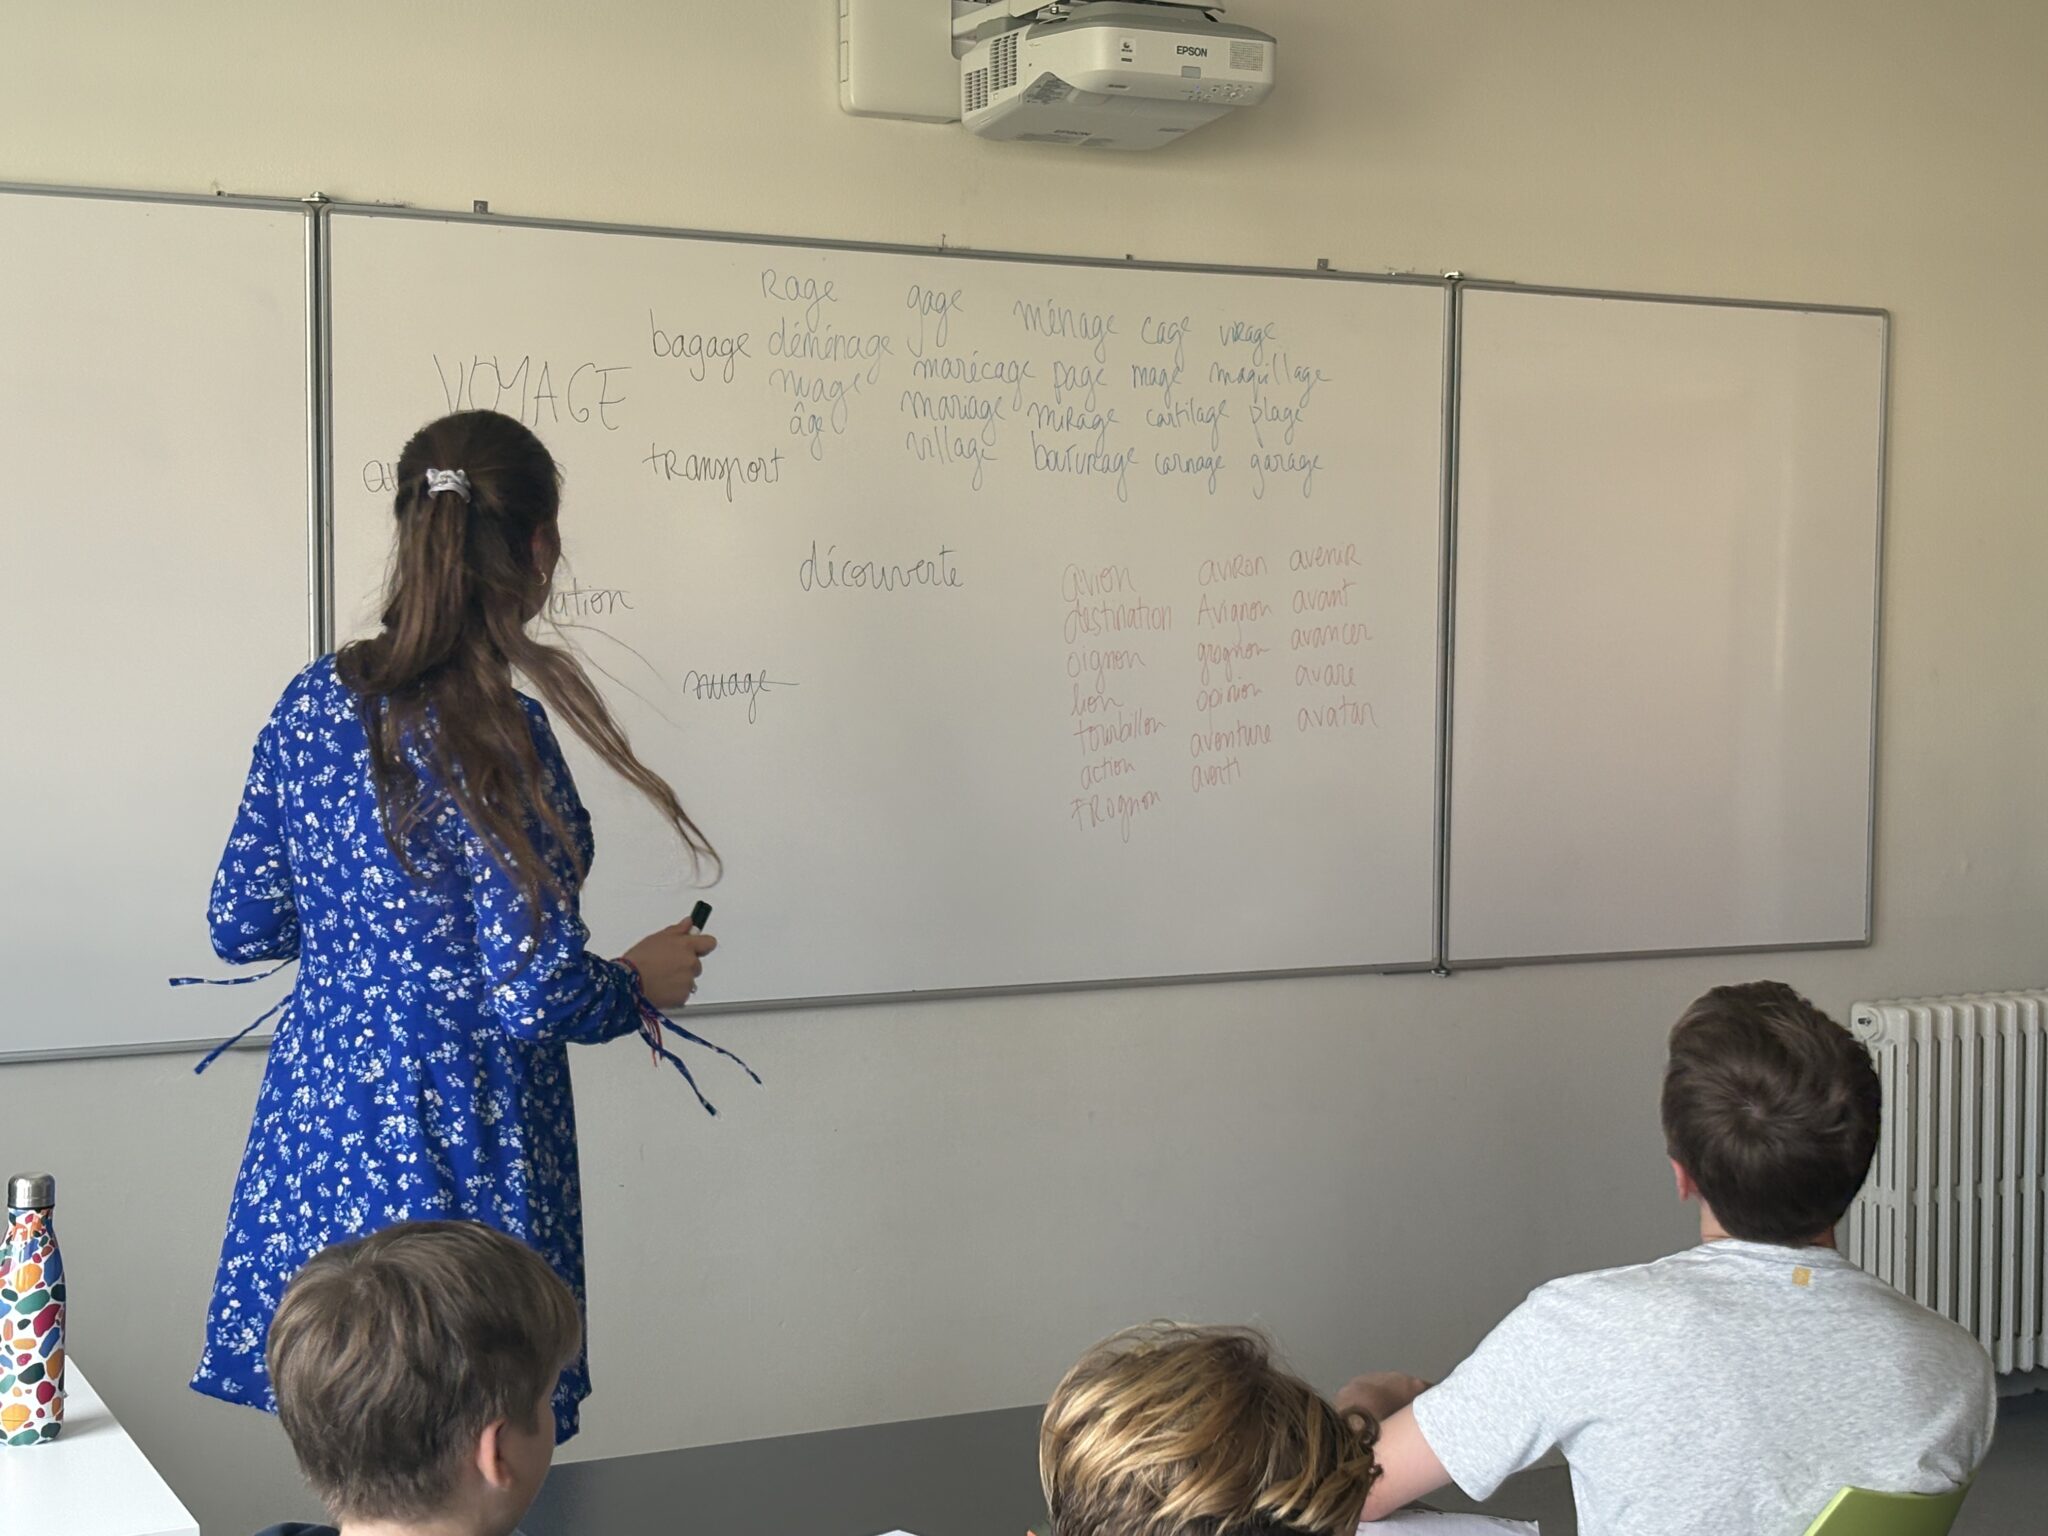 EPSON
EPSON
Rage gage ménage cage virage
bagage déménage marécage page mage maquillage
VOYAGE nuage mariage mirage cartilage plage
âge village bouturage carnage garage
transport
découverte
avion aviron avenir
destination Avignon avant
oignon grognon avancer
lion opinion avare
tourbillon aventure avatar
action averti
trognon
nuage